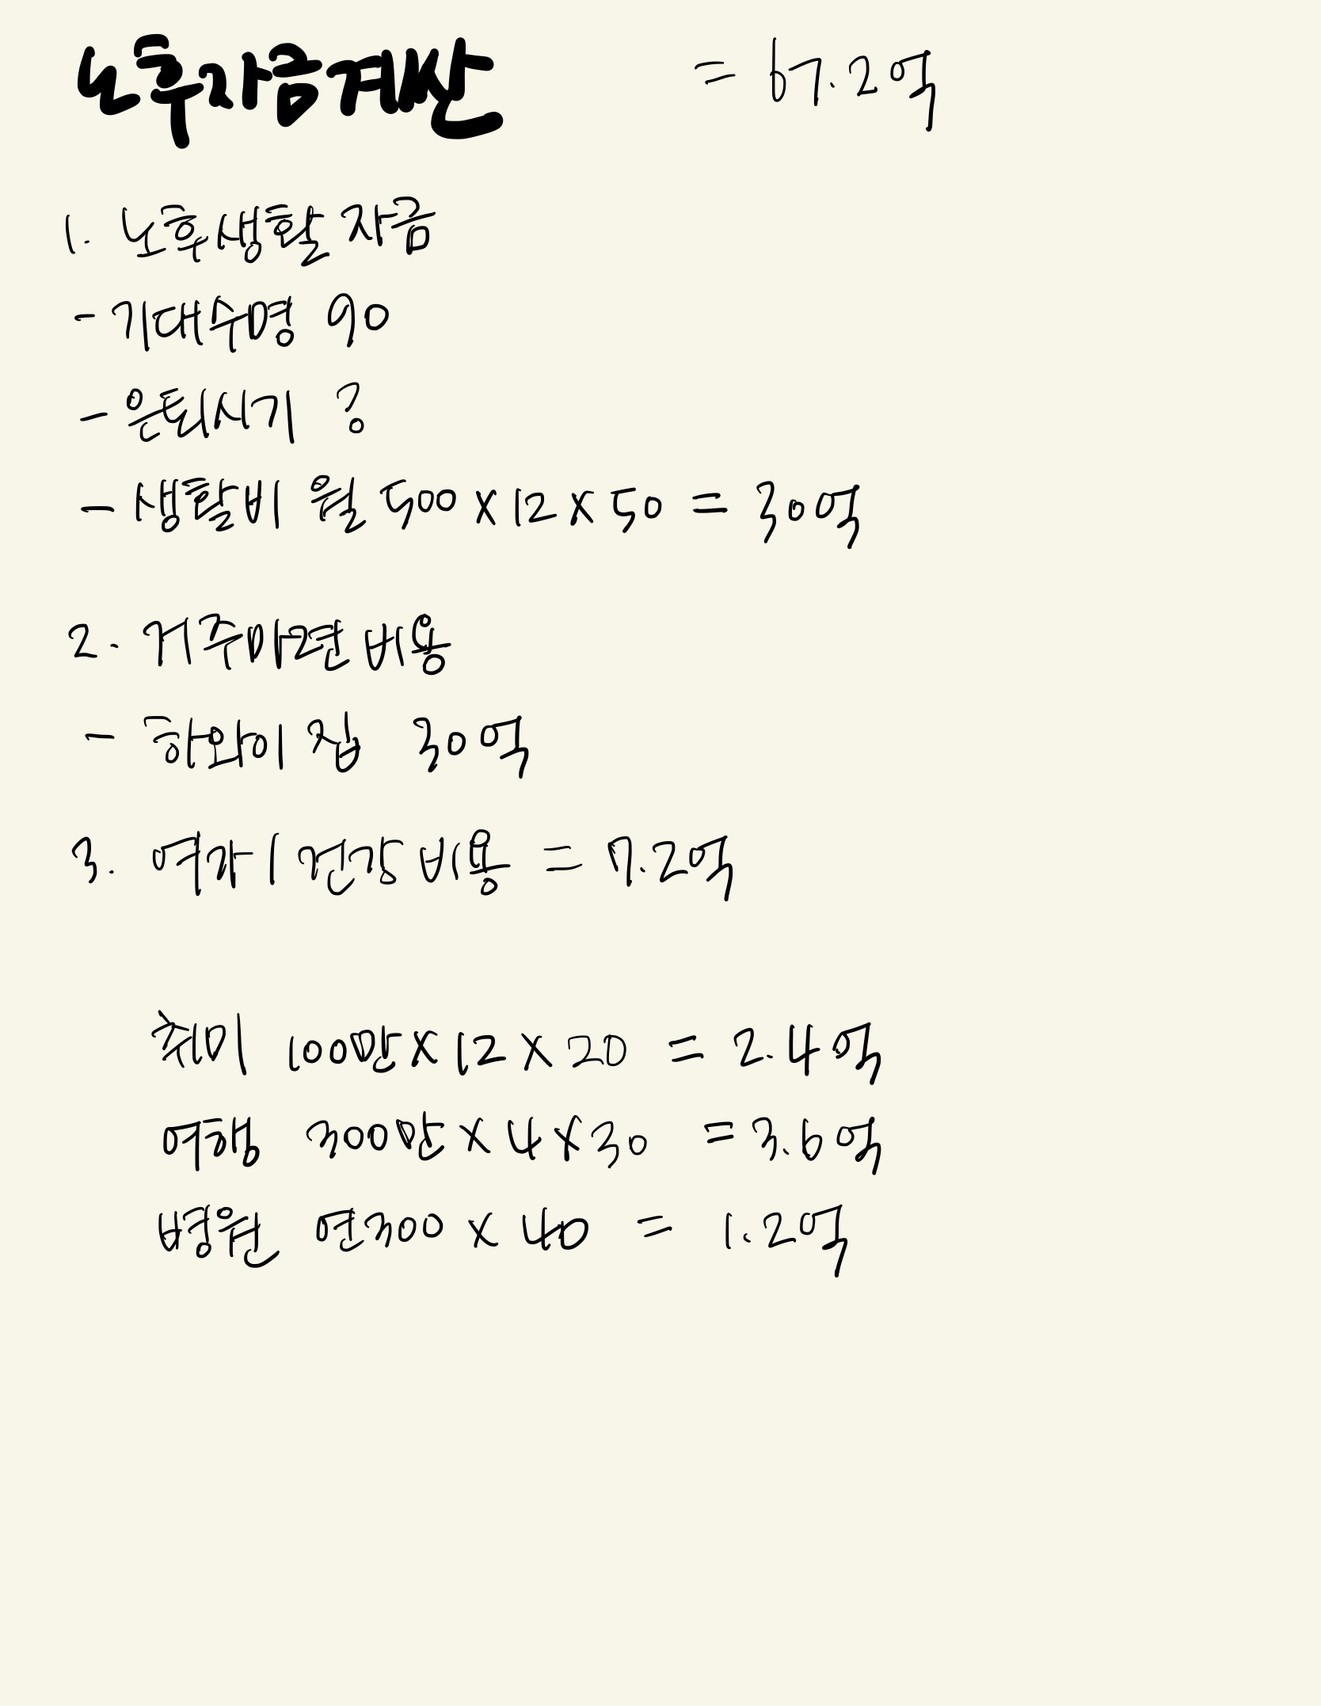 노후자금계산 = 67.2억
1. 노후생활 자금
- 기대수명 90
- 은퇴시기 ?
- 생활비 월 500 x 12 x 50 = 30억
2. 거주마련 비용
- 하와이 집 30억
3. 여가 / 건강 비용 = 7.2억
취미 100만 x 12 x 20 = 2.4억
여행 300만 x 4 x 30 = 3.6억
병원 연300 x 40 = 1.2억